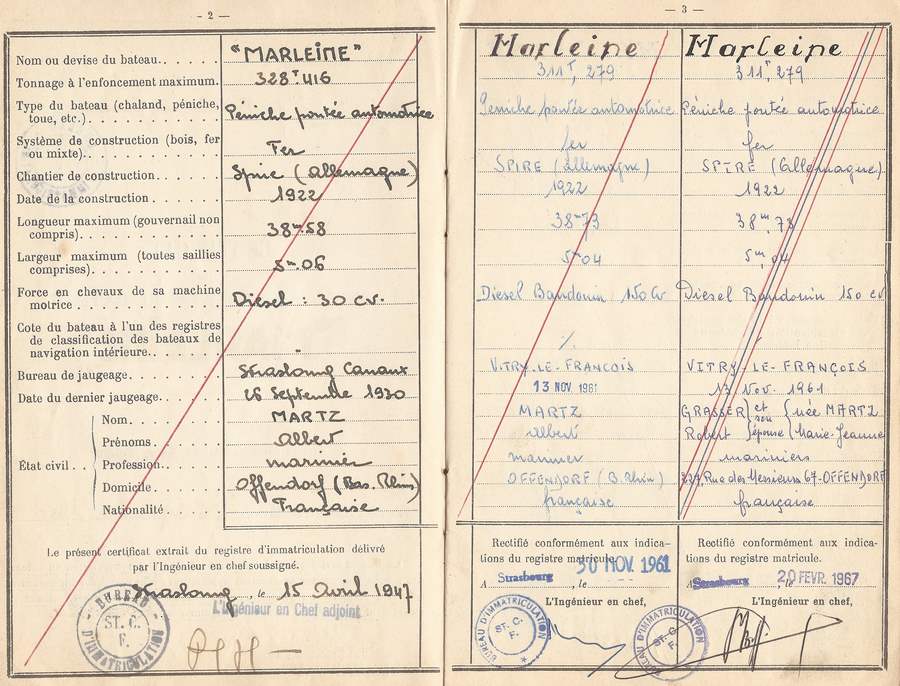 - 2 -
Nom ou devise du bateau. "MARLEINE"
Tonnage à l'enfoncement maximum. 328T416
Type du bateau (chaland, péniche, toue, etc.) Péniche pontée automotrice
Système de construction (bois, fer ou mixte). Fer
Chantier de construction. Spire (Allemagne)
Date de la construction 1922
Longueur maximum (gouvernail non compris). 38m.58
Largeur maximum (toutes saillies comprises). 5m.06
Force en chevaux de sa machine motrice Diesel : 30 cv.
Cote du bateau à l'un des registres de classification des bateaux de navigation intérieure.
Bureau de jaugeage. Strasbourg Canaux
Date du dernier jaugeage. 26 Septembre 1930
État civil.
Nom. MARTZ
Prénoms. Albert
Profession. marinier
Domicile. Offendorf (Bas. Rhin)
Nationalité. Française
Le présent certificat extrait du registre d'immatriculation délivré
par l'Ingénieur en chef soussigné.
Strasbourg, le 15 Avril 1947
L'Ingénieur en Chef adjoint
BUREAU D'IMMATRICULATION
ST. C. F.
- 3 -
Marleine
311T,279
Péniche pontée automotrice
fer
SPIRE (Allemagne)
1922
38m73
5m04
Diesel Baudouin 150 CV
VITRY-LE-FRANCOIS
13 NOV 1961
MARTZ
Albert
marinier
OFFENDORF (B. Rhin)
française
Rectifié conformément aux indica-
tions du registre matricule.
A Strasbourg, le 30 NOV. 1961
L'Ingénieur en chef,
BUREAU D'IMMATRICULATION
ST. C. F.
Marleine
311T,279
Péniche pontée automotrice
fer
SPIRE (Allemagne)
1922
38m,73
5m,04
Diesel Baudouin 150 CV
VITRY-LE-FRANÇOIS
13 Nov. 1961
GRASSER et son née MARTZ
Robert épouse Marie-Jeanne
mariniers
Rue des Messieurs 67-OFFENDORF
française
Rectifié conformément aux indica-
tions du registre matricule.
A Strasbourg, le 20 FEVR. 1967
L'Ingénieur en chef,
BUREAU D'IMMATRICULATION
ST. C. F.